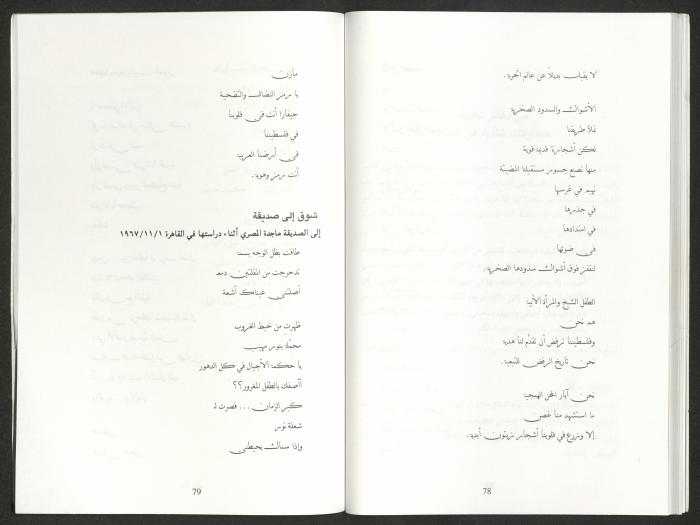 لا يقبلن بديلاً عن عالم الحرية.
الأشواك والسدود الصخرية
تملأ طريقنا
لكن أشجارنا قديمة قوية
منها نصنع جسور مستقبلنا المضيئة
نهيم في غرسها
في جذرها
في امتدادها
في ضوئها
لنقفز فوق أشواك سدودها الصخرية.
الطفل الشيخ والمرأة الأبية
هم نحن
وفلسطيننا ترفض أن تقدَّم لنا هدية
نحن تأريخ الرفض للتبعية.
نحن آبار المحن الهمجية
ما استشهد منا غصن
إلا ونزرع في قلوبنا أشجار زيتون أبدية.
78
مازن
يا رمز النضال والتضحية
جيفارا أنت في قلوبنا
في فلسطيننا
في أرضنا العربية
أنت رمز وهوية.
شوق إلى صديقة
إلى الصديقة ماجدة المصري أثناء دراستها في القاهرة ١٩٦٧/١١/١
طافت بظل الوجه بسمة
تدحرجت من المقلتين دمعة
أصلتني عيناك أشعة
ظهرت من خيط الغروب
محملة بنور مهيب
يا حكمة الأجيال في كل الدهور
أأصفك بالطفل المغرور؟؟
كبر الزمان... فصرت له
شعلة نور
وإذا سناك يحيطني
79